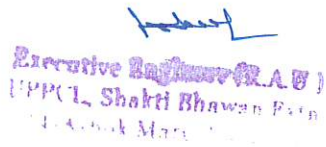 Executive Engineer (R.A.U)
UPPCL, Shakti Bhawan Extn
Ashok Marg